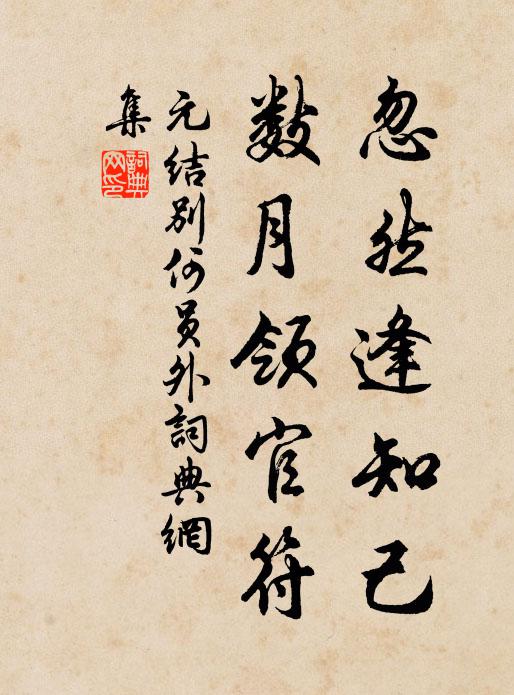 忽然逢知己
数月领官符
元结别何员外詞典網
集
詞典
网印